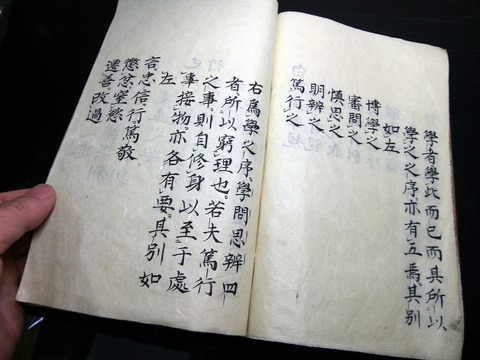 學者學此而已而其所以
學之之序亦有五焉其別
如左
博學之
審問之
慎思之
明辨之
篤行之
右爲學之序學問思辨四
者所以窮理也若夫篤行
之事則自修身以至于處
事接物亦各有要其別如
左
言忠信行篤敬
懲忿窒慾
遷善改過